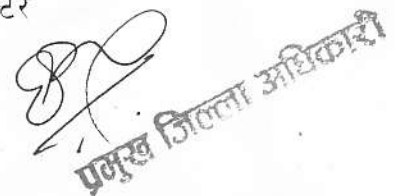 टर
प्रमुख जिल्ला अधिकारी